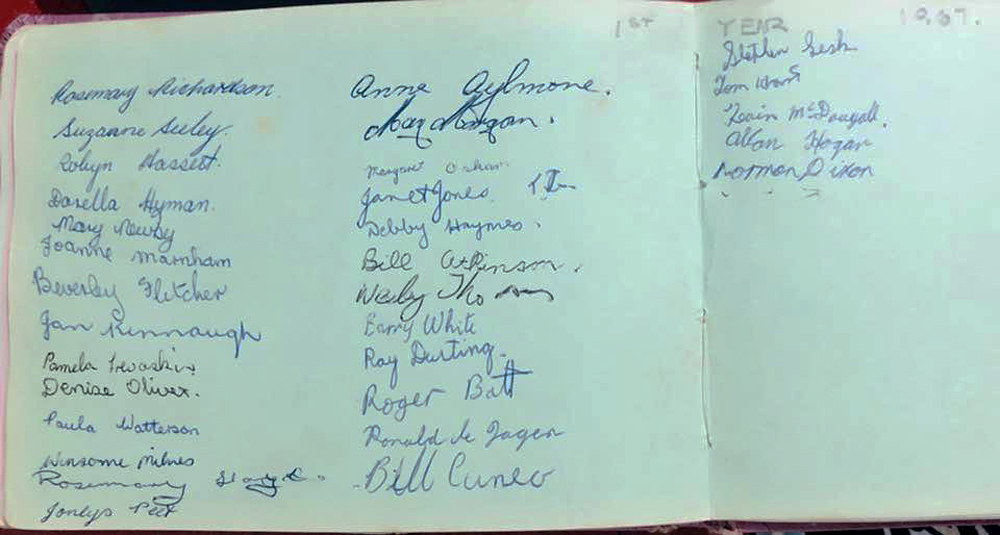 1ST YEAR 1967.
Rosemary Richardson.
Suzanne Seeley.
Robyn Hassett.
Darella Hyman.
Mary Newby
Joanne Marnham
Beverley Fletcher
Jan Kinnaugh
Pamela
Denise Oliver.
Paula Watterson
Winsome Milnes
Rosemary
Jonlys Peet
Anne Aylmore.
Max Morgan.
Margaret
Janet Jones.
Debby Haymes.
Bill Atkinson.
Wesley Thomas
Barry White
Ray Durting.
Roger Batt
Ronald de Jager
Bill Cuneo
Stephen
Tom
McDougall.
Allan Hogan
Norman Dixon